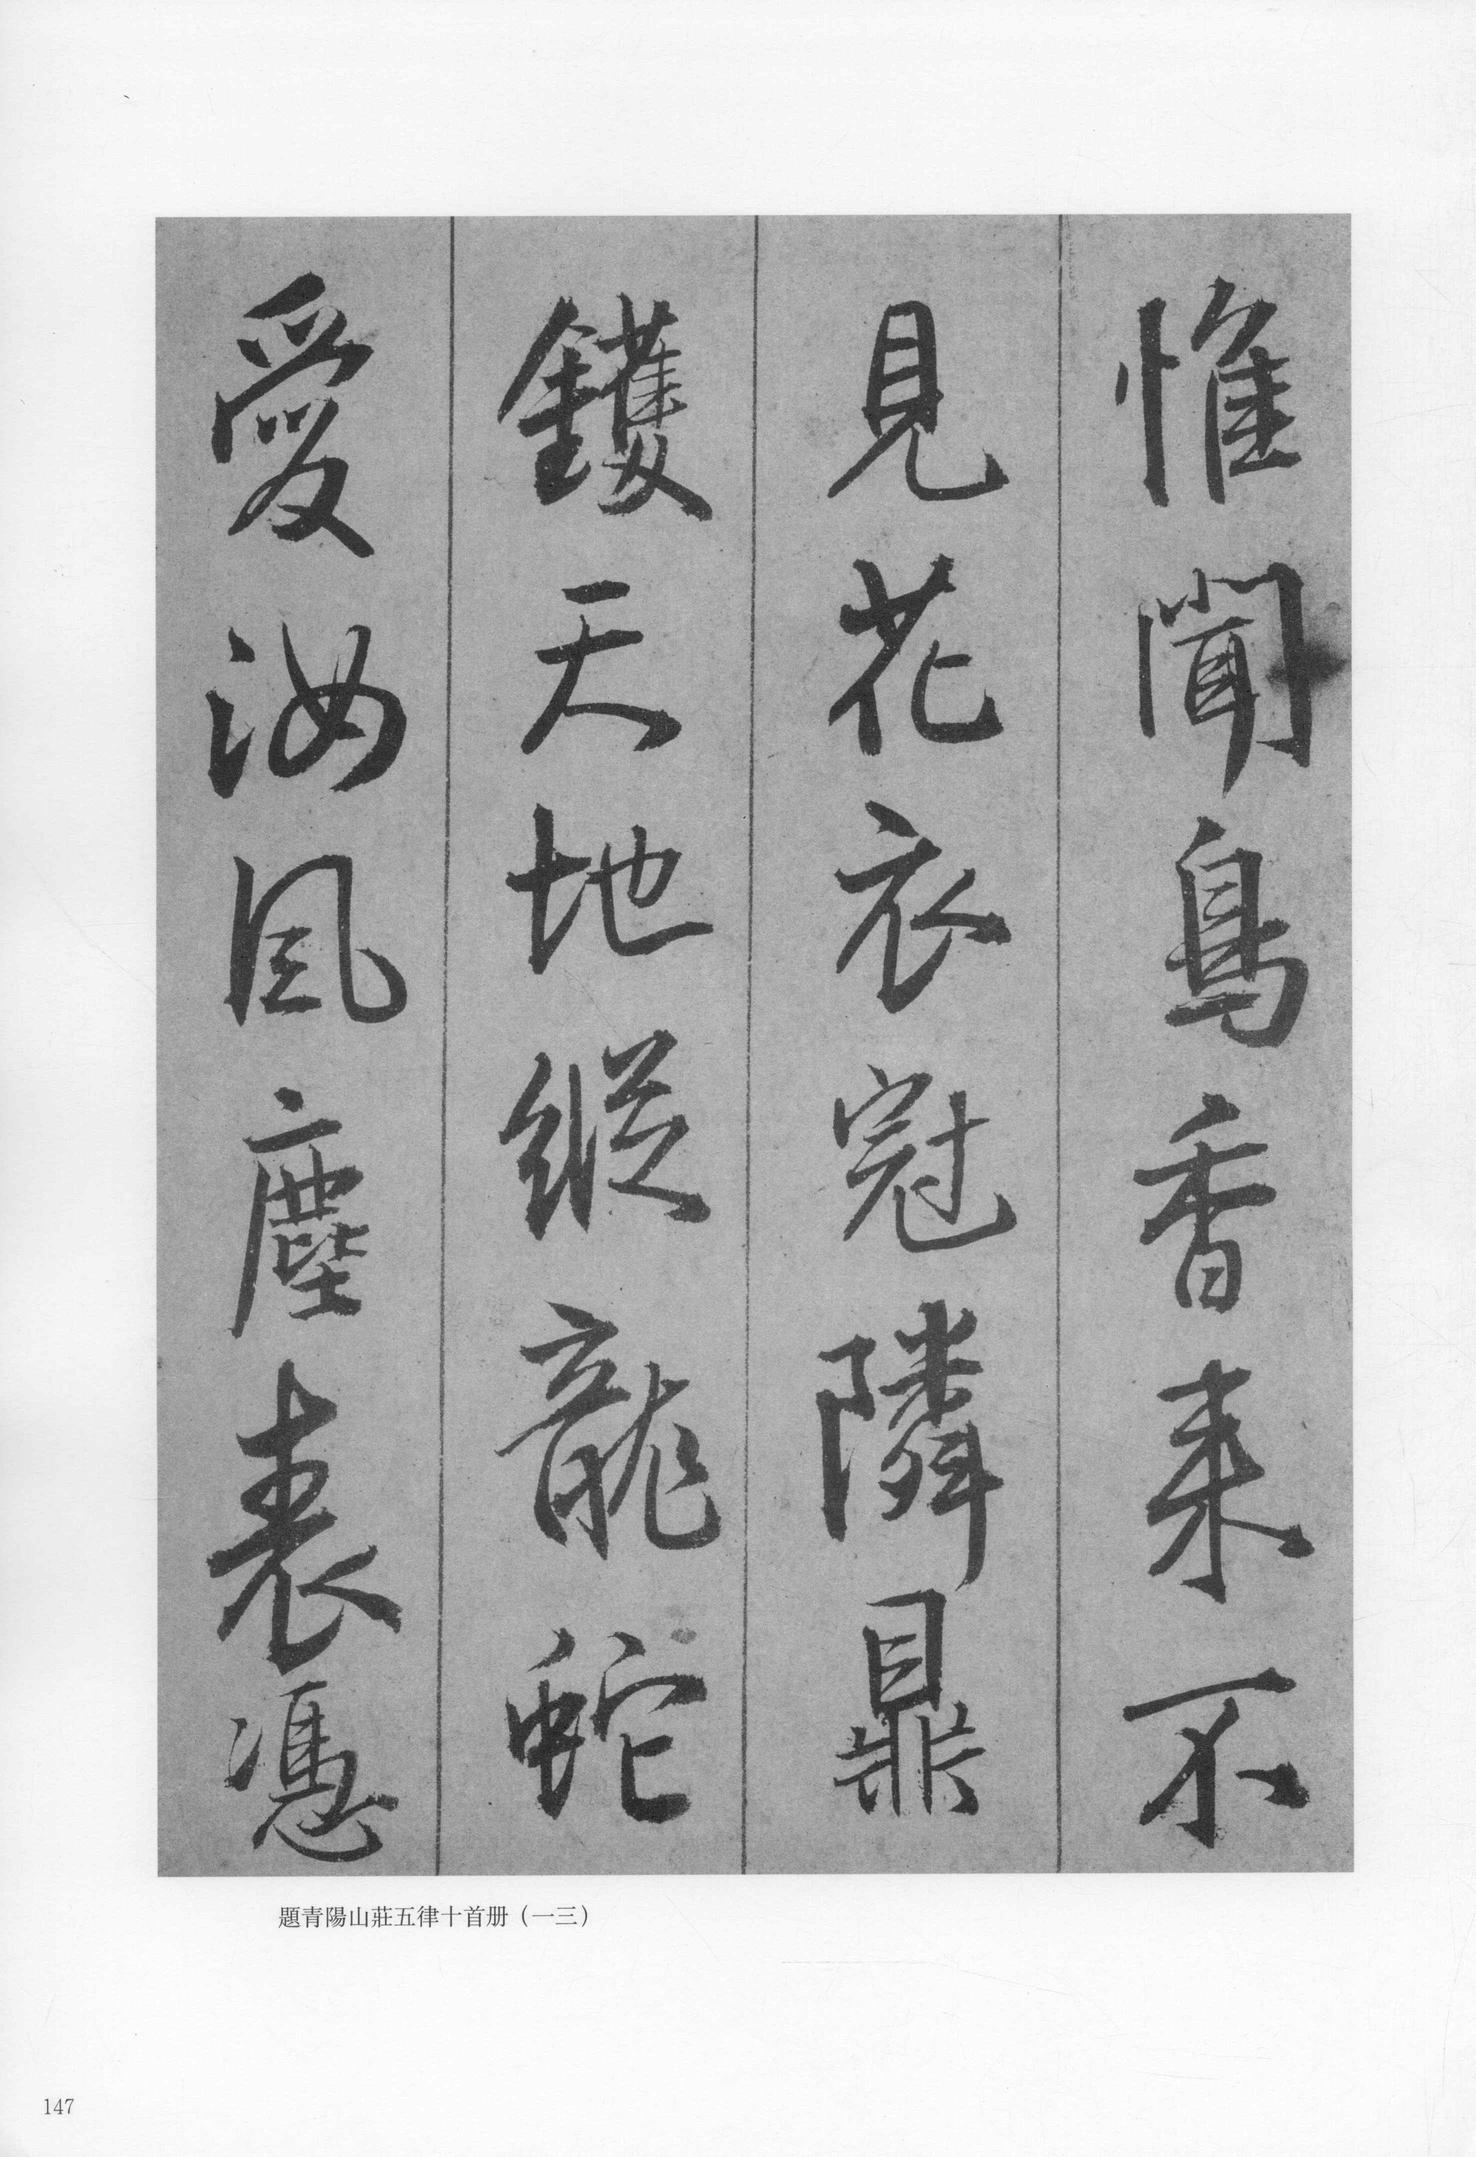 惟聞鳥香来不
見花衣冠隣鼎
鑊天地縱龍蛇
愛汝風塵表憑
題青陽山莊五律十首册（一三）
147